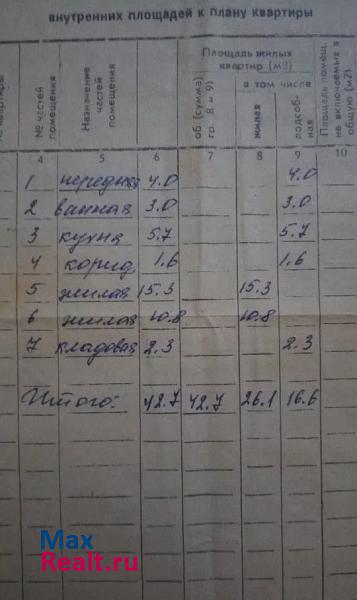 внутренних площадей к плану квартиры
квартиры
№ частей помещения
Назначение частей помещения
Площадь жилых квартир (м2)
об. (сумма гр. 8 и 9)
в том числе
жилая
подсоб-
ная
Площадь помещ. не включаемых в общую (м2)
4 5 6 7 8 9 10
1 передняя 4.0 4.0
2 ванная 3.0 3.0
3 кухня 5.7 5.7
4 корид. 1.6 1.6
5 жилая 15.3 15.3
6 жилая 10.8 10.8
7 кладовая 2.3 2.3
Итого: 42.7 42.7 26.1 16.6
Max
Realt.ru